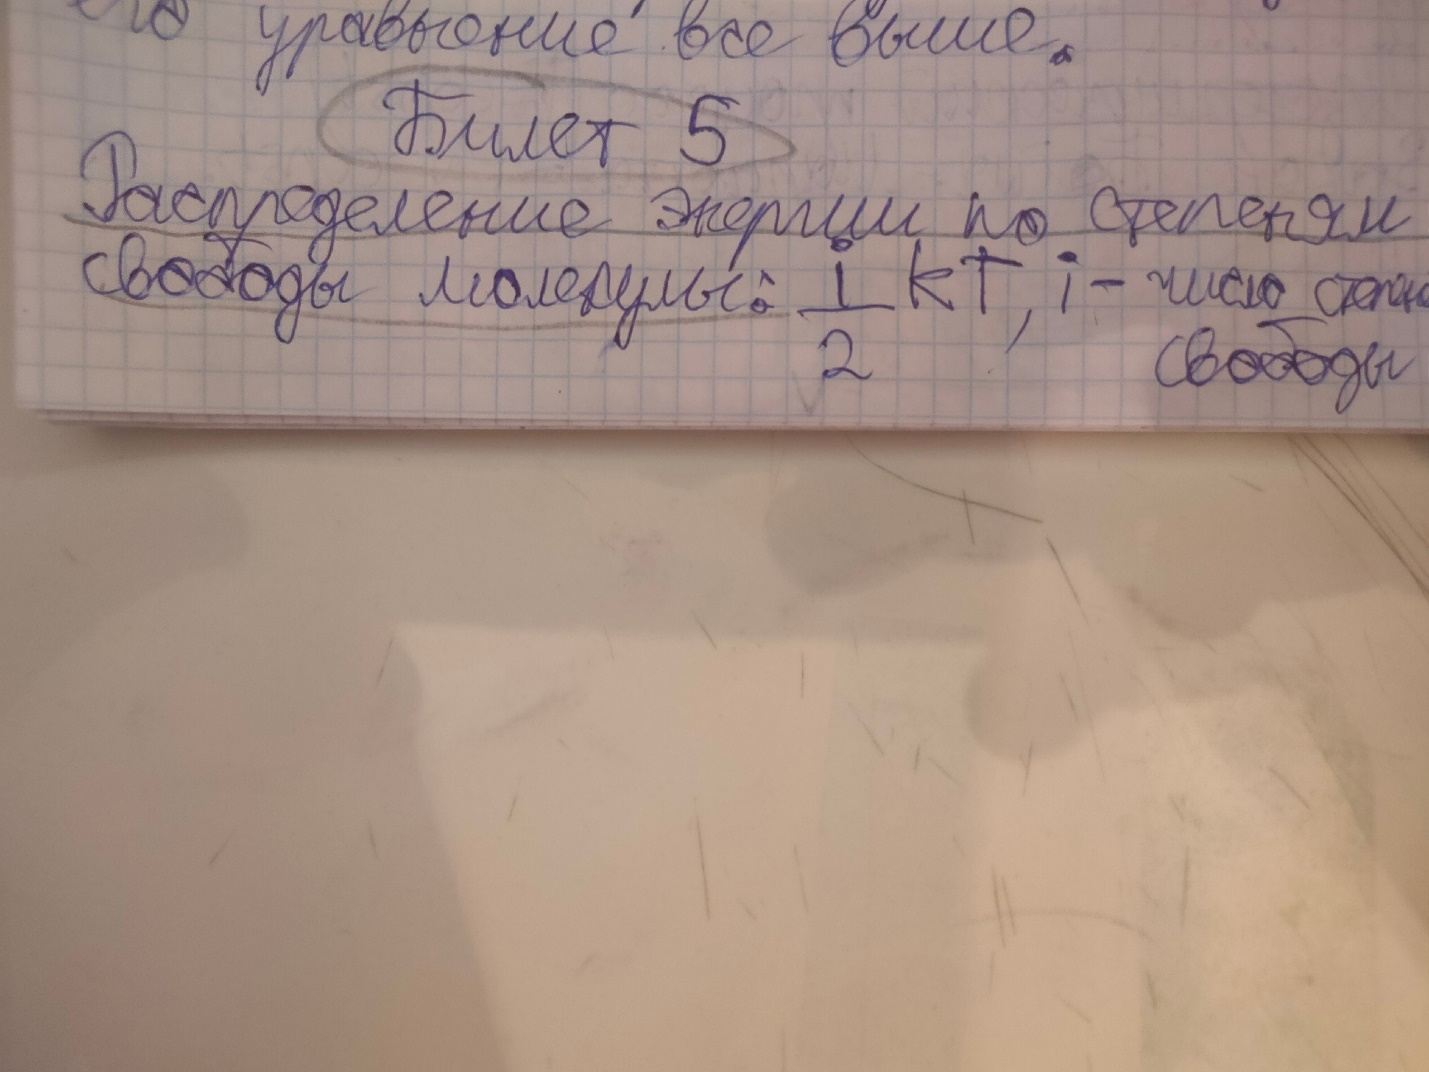 его уравнение все выше.
Билет 5
Распределение энергии по степеням
свободы молекулы: i/2 kT, i - число степен
свободы